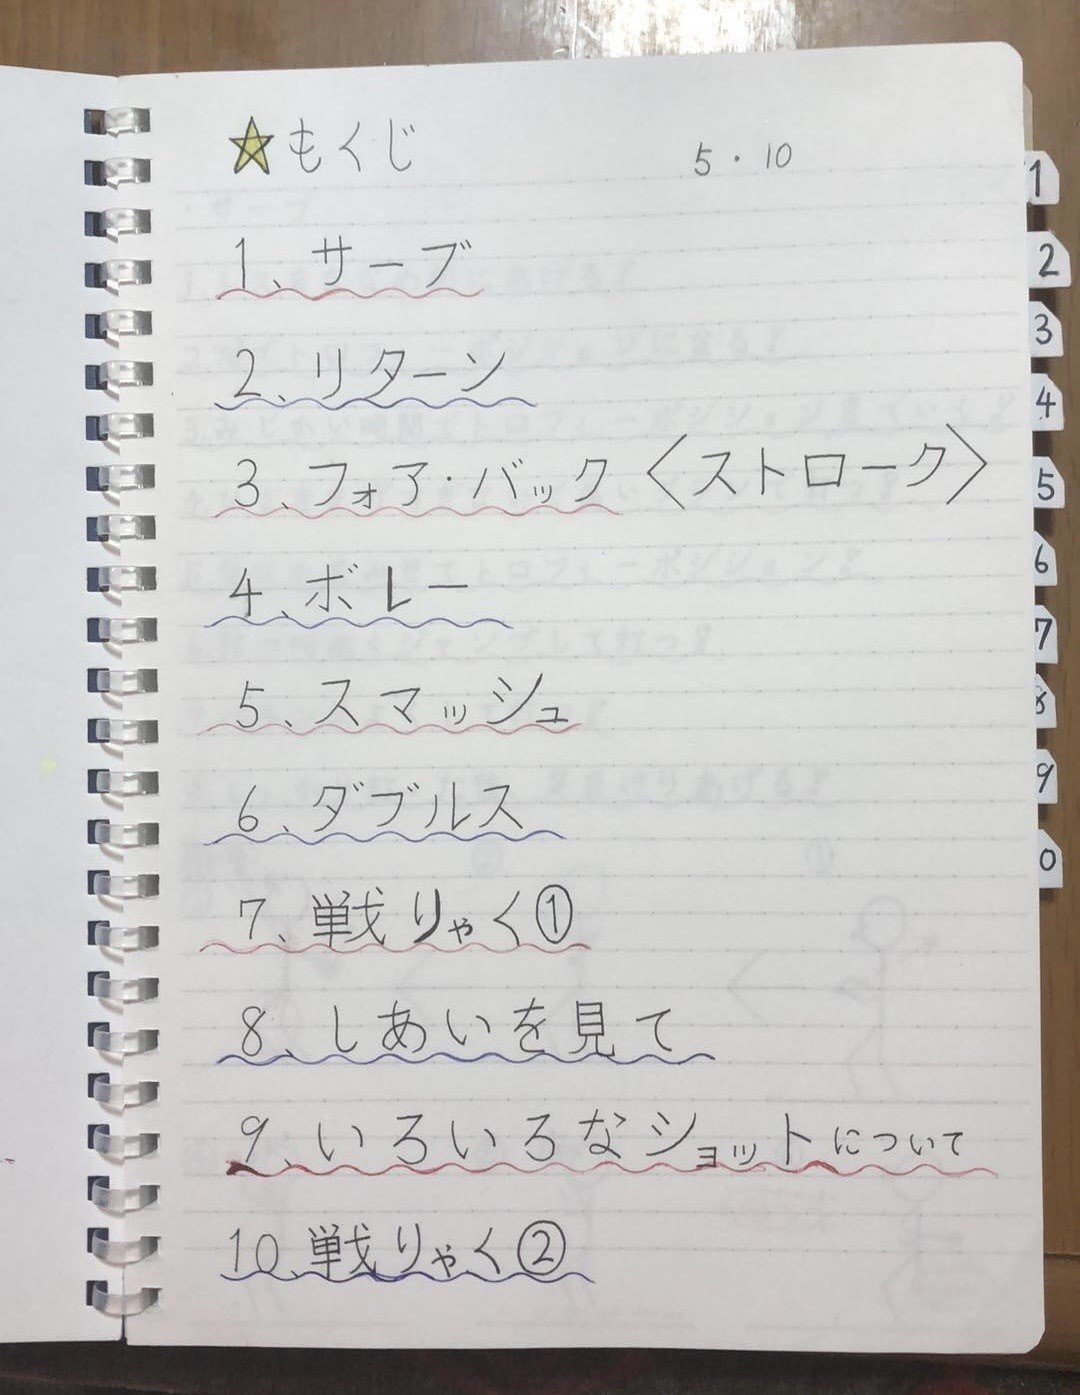 ★もくじ 5・10
1、サーブ
2、リターン
3、フォア・バック〈ストローク〉
4、ボレー
5、スマッシュ
6、ダブルス
7、戦りゃく①
8、しあいを見て
9、いろいろなショットについて
10、戦りゃく②
1
2
3
4
5
6
7
8
9
0